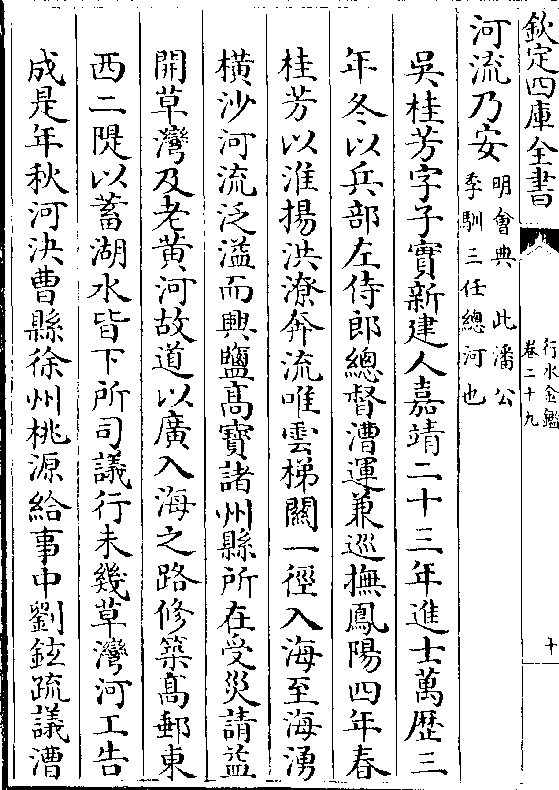 欽定四庫全書
行水金鑑
卷二十九
十
河流乃安
明會典 此潘公
季馴三任總河也
吳桂芳字子實新建人嘉靖二十三年進士萬歷三
年冬以兵部左侍郎總督漕運兼巡撫鳳陽四年春
桂芳以淮揚洪潦奔流唯雲梯關一徑入海至海湧
橫沙河流泛溢而興鹽髙寶諸州縣所在受災請益
開草灣及老黄河故道以廣入海之路修築髙郵東
西二隄以蓄湖水皆下所司議行未幾草灣河工告
成是年秋河決曹縣徐州桃源給事中劉鉉疏議漕